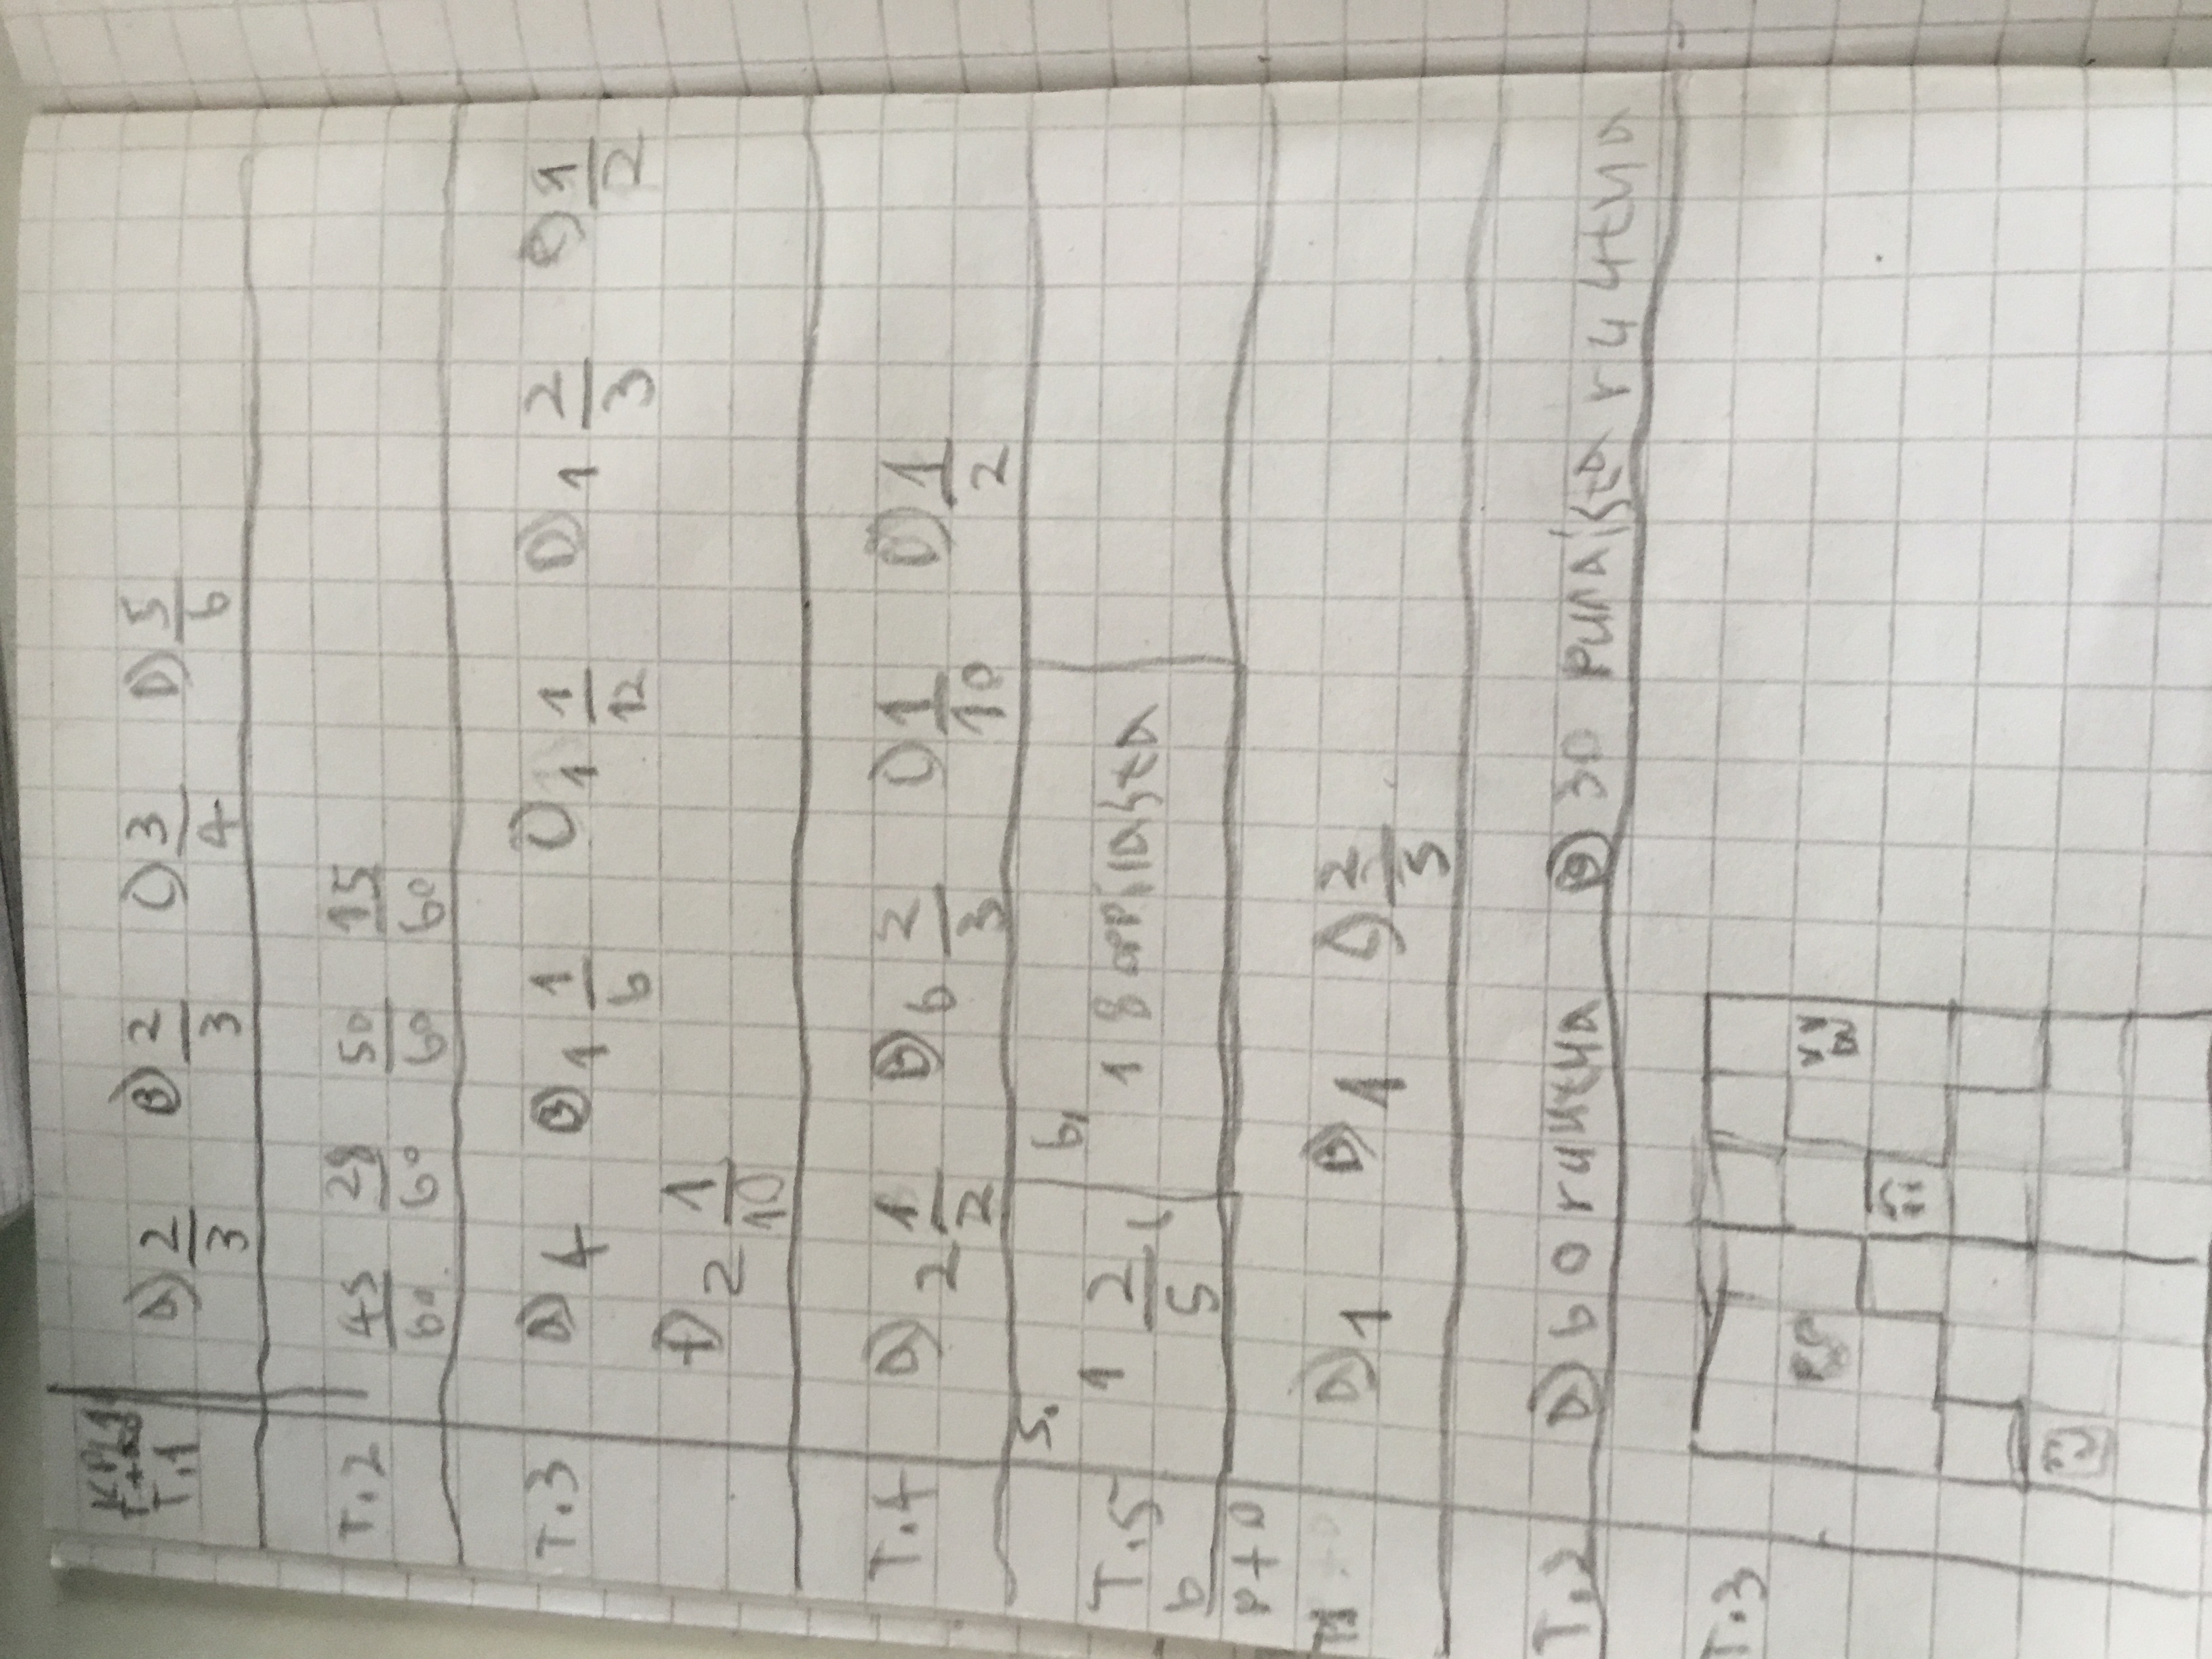 KPL 1
T.1 A) 2/3 B) 2/3 C) 3/4 D) 5/6
T.2 45/60 28/60 50/60 15/60
T.3 A) 4 B) 1 1/6 C) 1 1/12 D) 1 2/3 E) 1/2
F) 2 1/10
T.4 A) 2 1/2 B) 6 2/3 C) 1/10 D) 1/2
T.5 5. 1 2/5 l
6, 18 oppilasta
6
P+O
A) 1 B) 4 C) 2/5
T.2 A) 60 ruutua B) 30 punaista ruutua
T.3